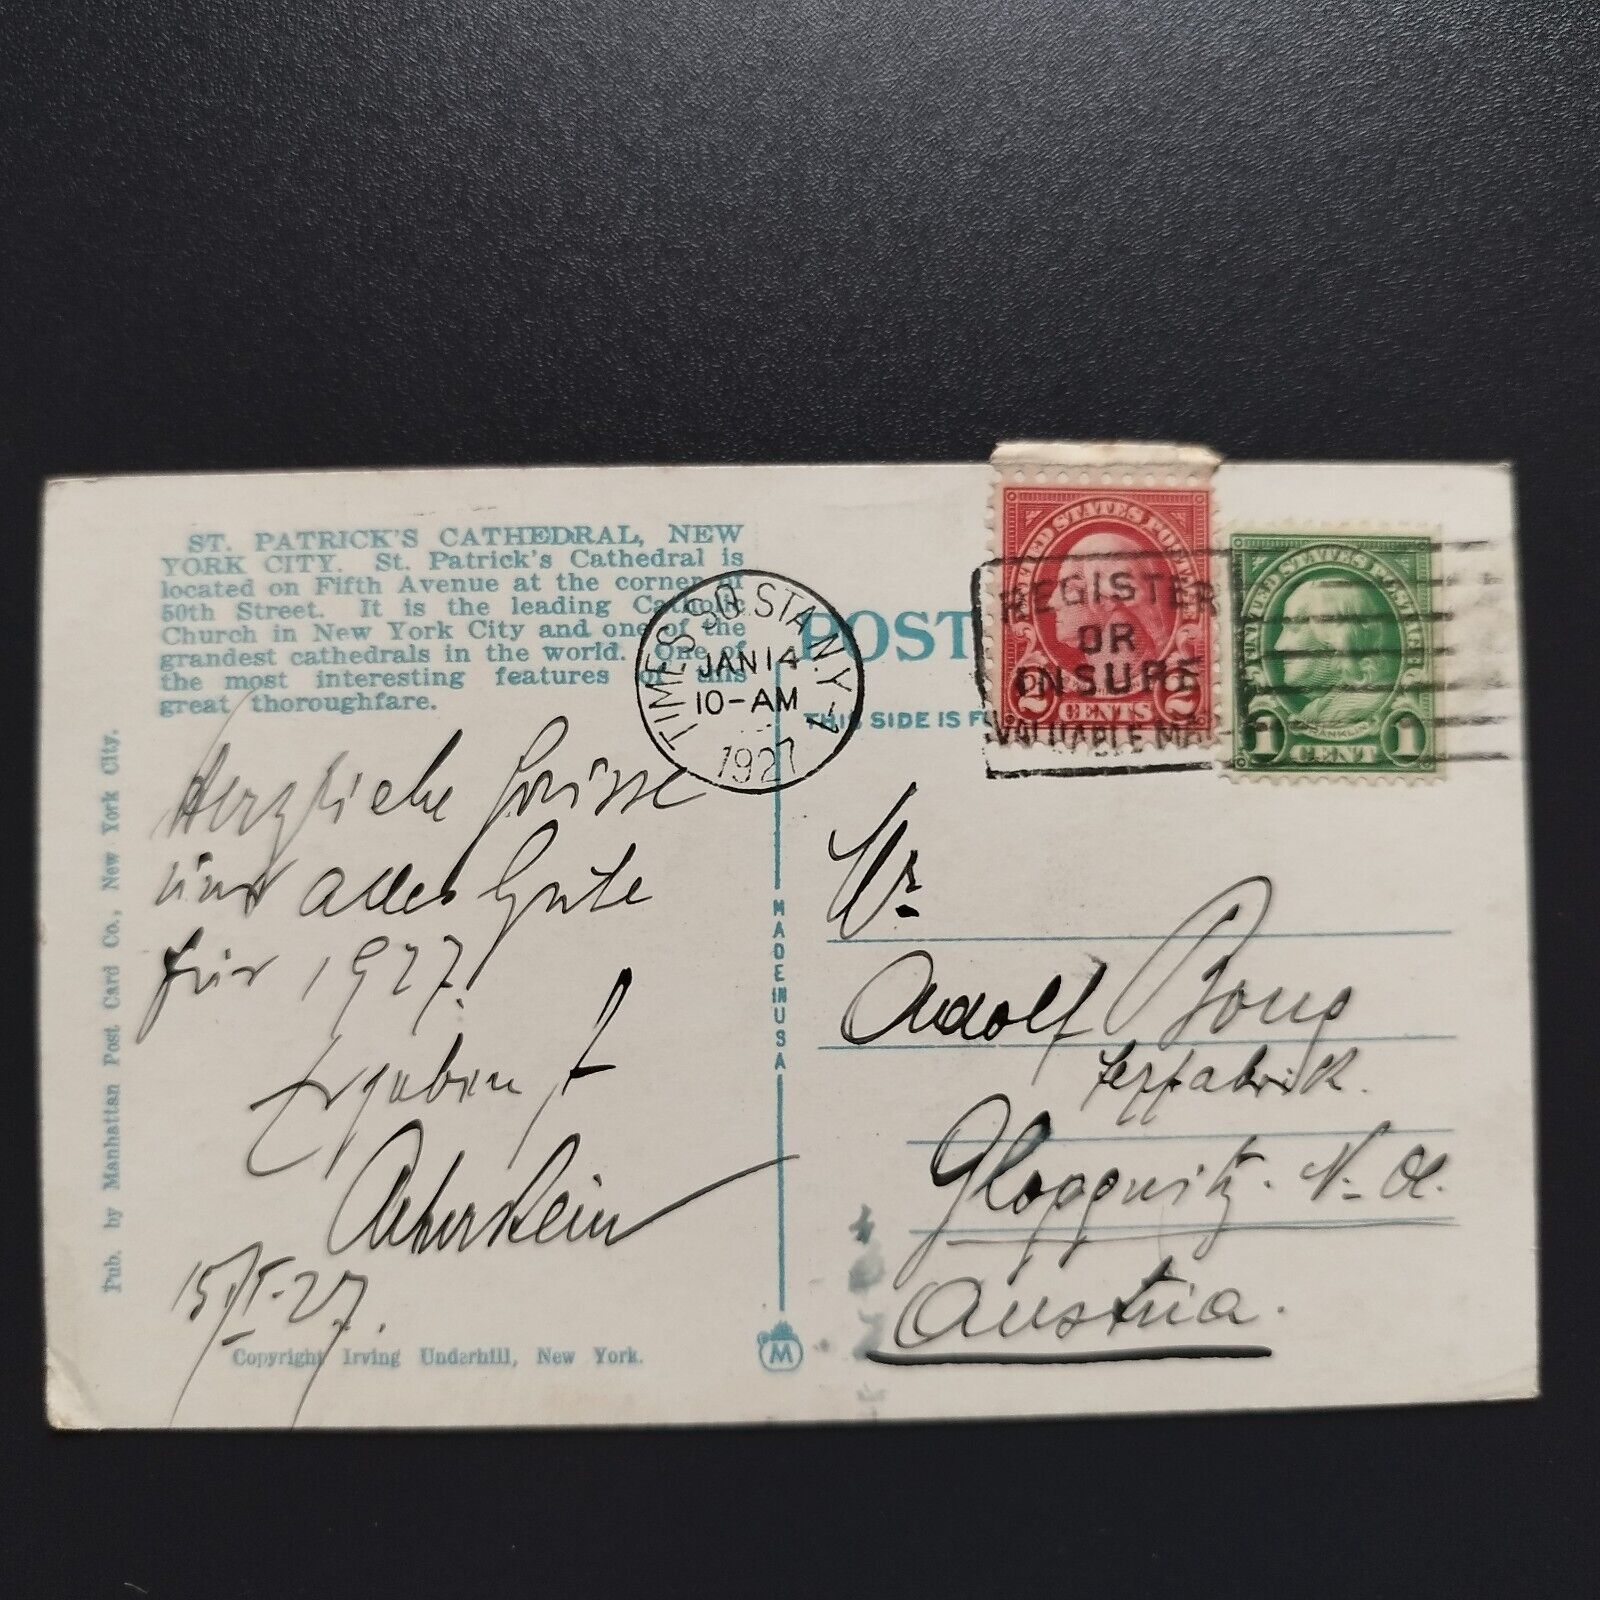 ST. PATRICK'S CATHEDRAL, NEW
YORK CITY. St. Patrick's Cathedral is
located on Fifth Avenue at the corner of
50th Street. It is the leading Catholic
Church in New York City and one of the
grandest cathedrals in the world. One of
the most interesting features of this
great thoroughfare.
Herzliche Grüsse
und alles Gute
für 1927.
Ergebenst
15/I-27.
Copyright Irving Underhill, New York.
Pub. by Manhattan Post Card Co., New York City.
MADE IN USA
M
TIMES SQ. STA. N.Y.
JAN 14
10-AM
1927
POST
THIS SIDE IS F
UNITED STATES POSTAGE
2 CENTS 2
REGISTER
OR
INSURE
VALUABLE MA
UNITED STATES POSTAGE
FRANKLIN
1 CENT 1
Mr
Adolf
Gloggnitz. N-Ö.
Austria.